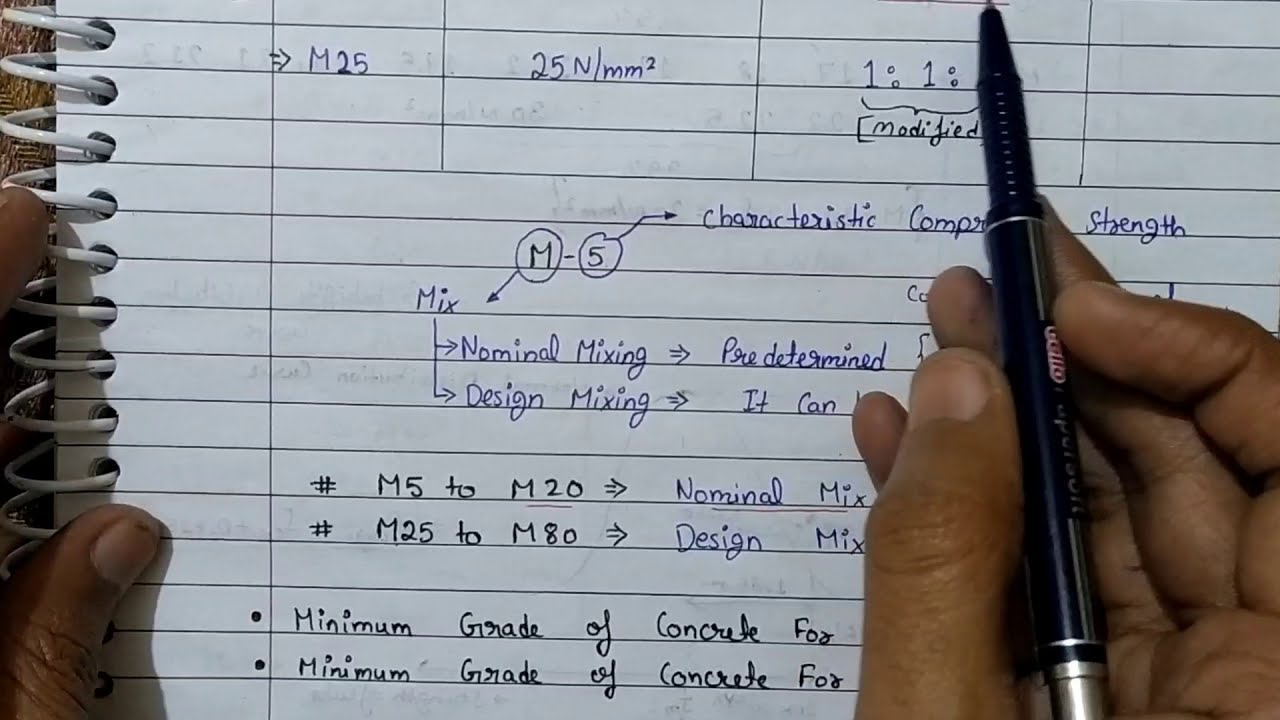 ⇒ M25 25 N/mm² 1: 1:
[modified
Characteristic Strength
M - 5
Mix
→ Nominal Mixing ⇒ Predetermined
→ Design Mixing ⇒ It Can
# M5 to M20 ⇒ Nominal Mix
# M25 to M80 ⇒ Design Mix
• Minimum Grade of Concrete For
• Minimum Grade of Concrete For